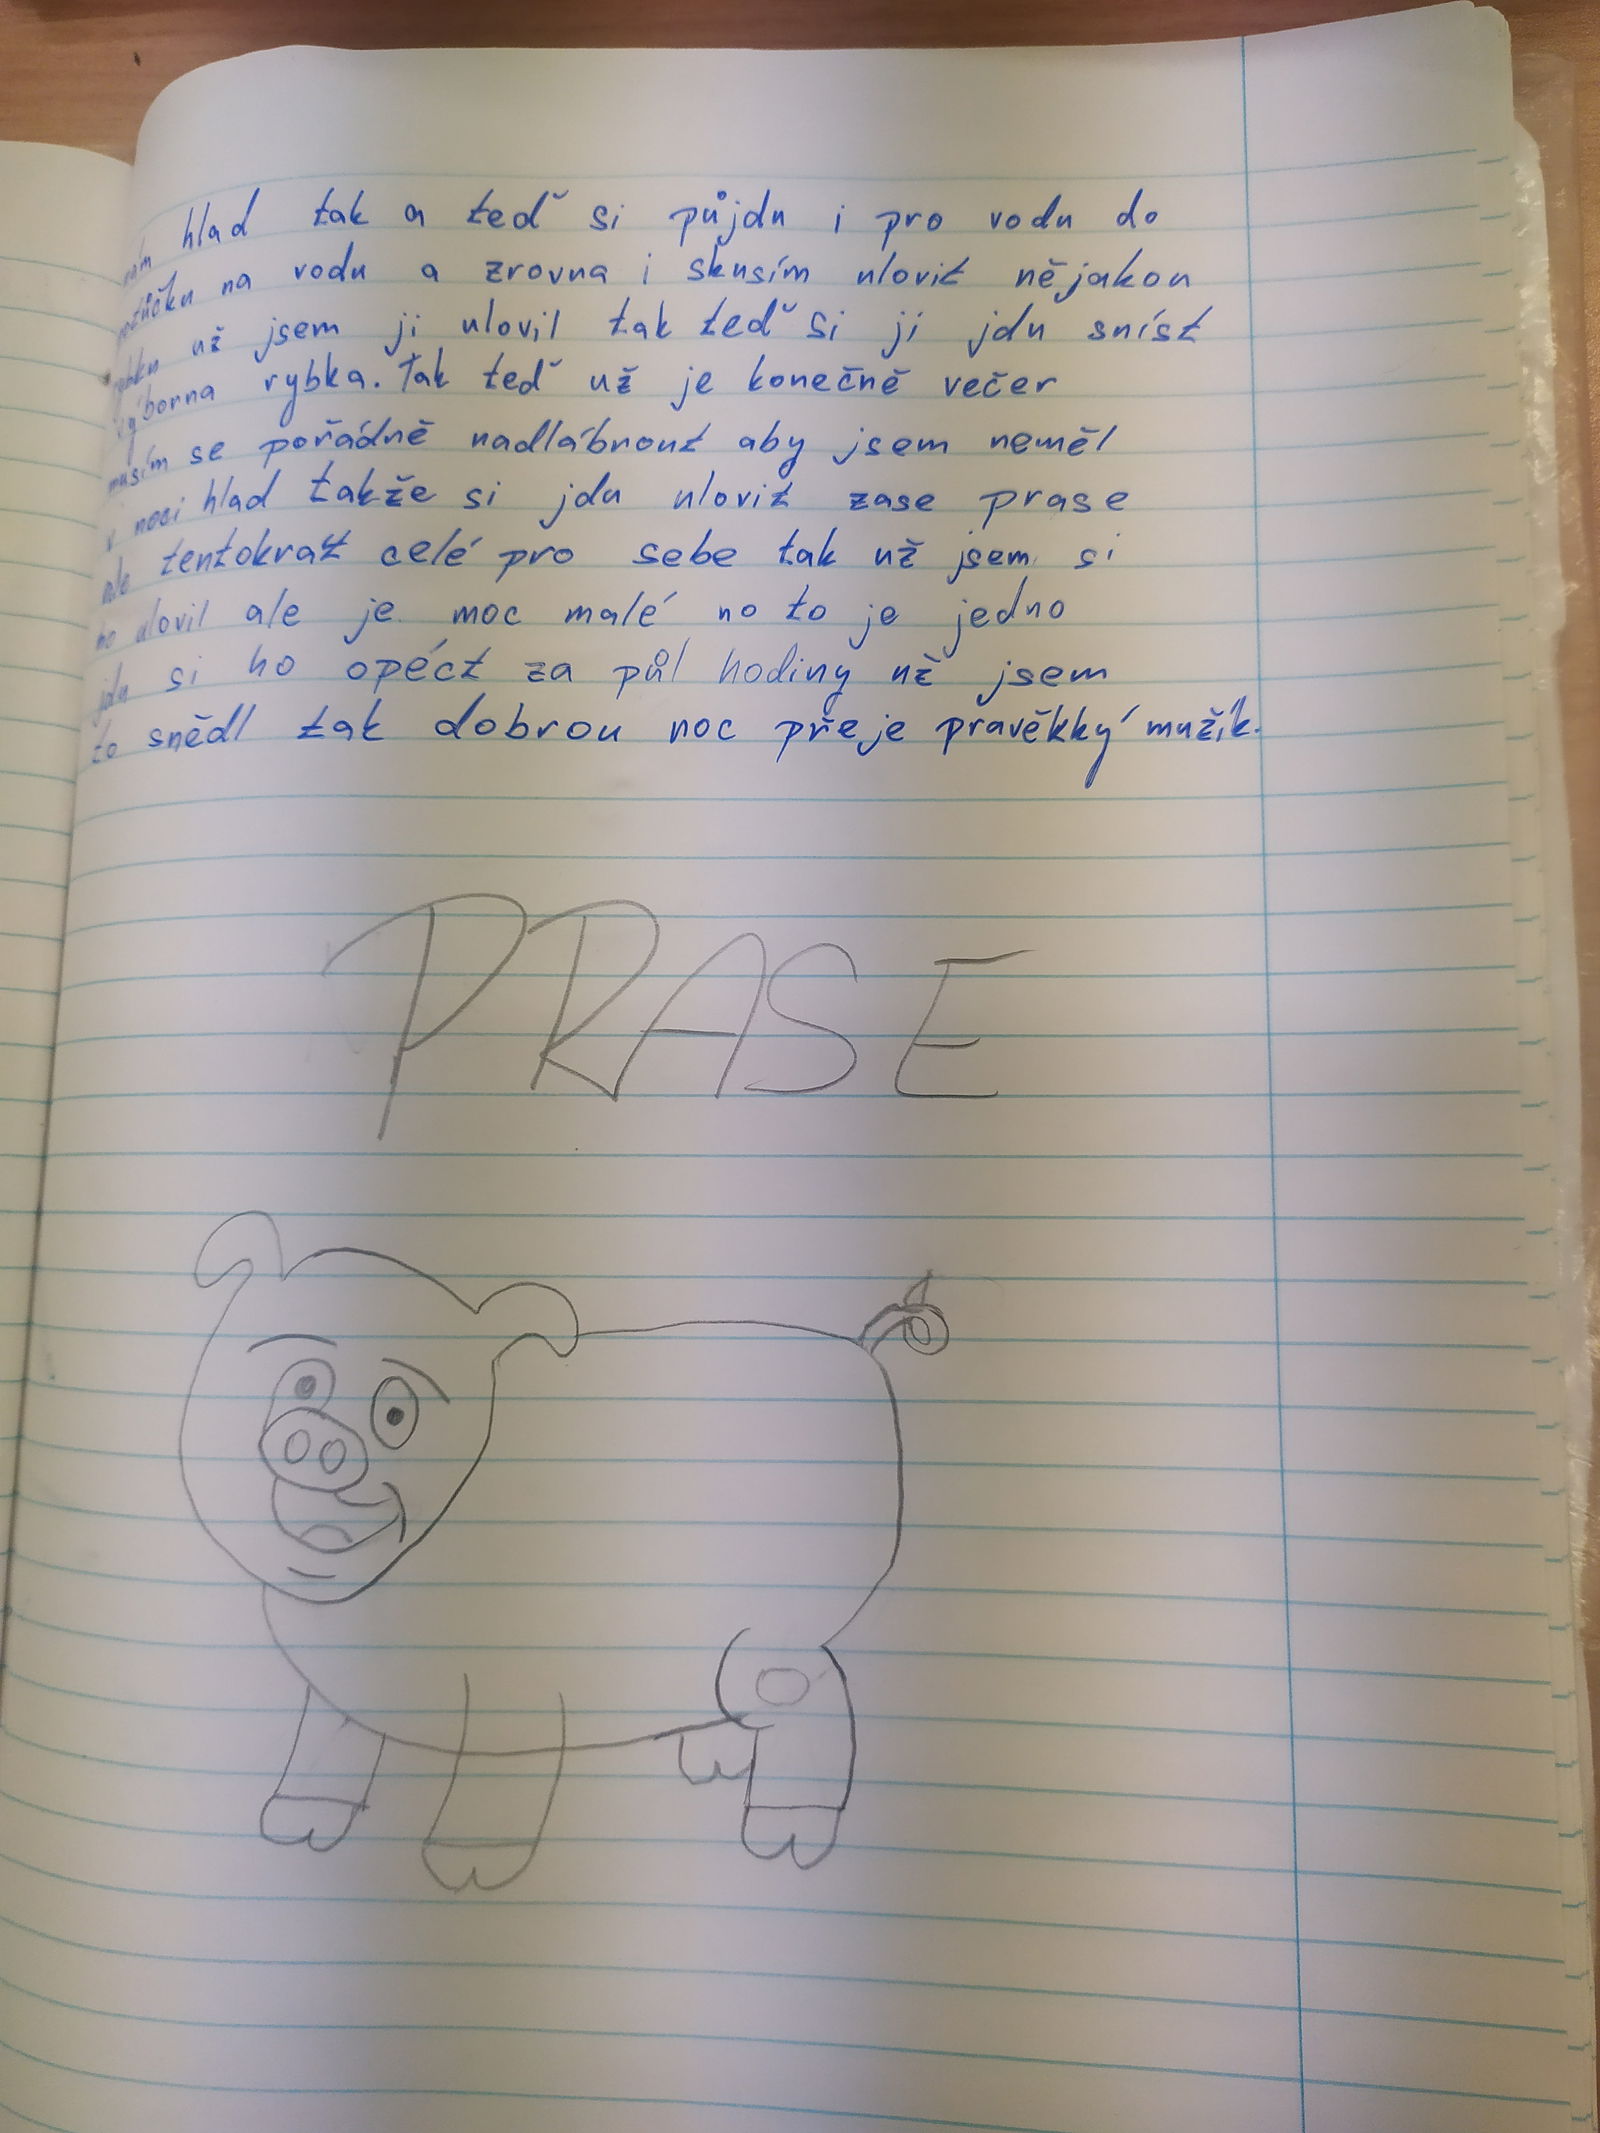 mám hlad tak a teď si půjdu i pro vodu do
na vodu a zrovna i skusím ulovit nějakou
rybku už jsem ji ulovil tak teď si ji jdu sníst
výborna rybka. Tak teď už je konečně večer
musím se pořádně nadlábnout aby jsem neměl
v noci hlad takže si jdu ulovit zase prase
ale tentokrát celé pro sebe tak už jsem si
ho ulovil ale je moc malé no to je jedno
jdu si ho opéct za půl hodiny už jsem
to snědl tak dobrou noc přeje pravěkký mužík.
PRASE